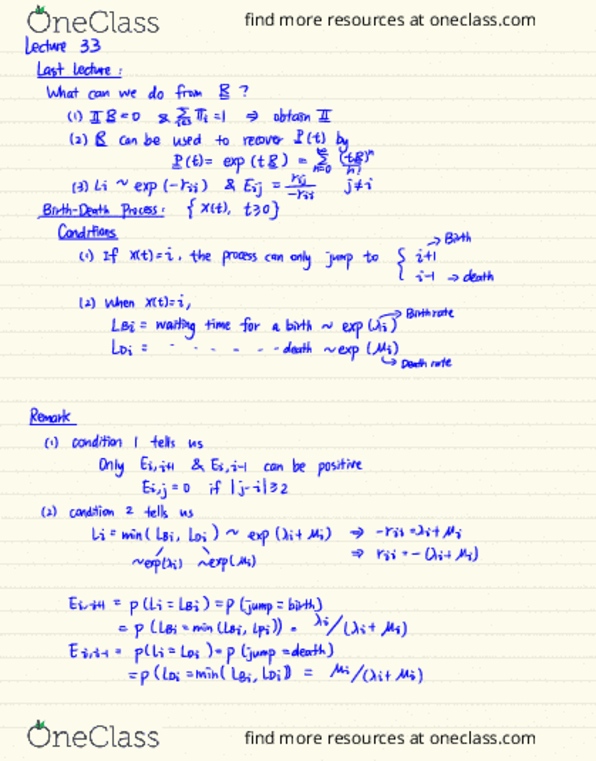 OneClass find more resources at oneclass.com
Lecture 33
Last lecture :
What can we do from R ?
(1) Π R = 0 & Σ_{i∈S} Π_i = 1 ⇒ obtain Π
(2) R can be used to recover P(t) by
P(t) = exp (t R) = Σ_{n=0}^{∞} (tR)^n / n!
(3) Li ~ exp (-rii) & Eij = rij / -rii j≠i
Birth-Death Process : { X(t), t≥0}
Conditions
(1) If X(t)=i, the process can only jump to { i+1 → Birth
i-1 → death
(2) When X(t)=i,
LBi = waiting time for a birth ~ exp (λi) → Birth rate
LDi = - - - - - - death ~ exp (μi)
↳ Death rate
Remark
(1) condition 1 tells us
Only Ei,i+1 & Ei,i-1 can be positive
Ei,j = 0 if |j-i|≥2
(2) condition 2 tells us
Li = min( LBi, LDi ) ~ exp (λi+μi) ⇒ -rii = λi+μi
~exp(λi) ~exp(μi) ⇒ rii = -(λi+μi)
Ei,i+1 = p (Li = LBi) = p (jump = birth)
= p (LBi = min (LBi, LDi)) = λi/(λi+μi)
Ei,i-1 = p(Li = LDi) = p (jump = death)
= p (LDi = min( LBi, LDi)) = μi/(λi+μi)
OneClass find more resources at oneclass.com